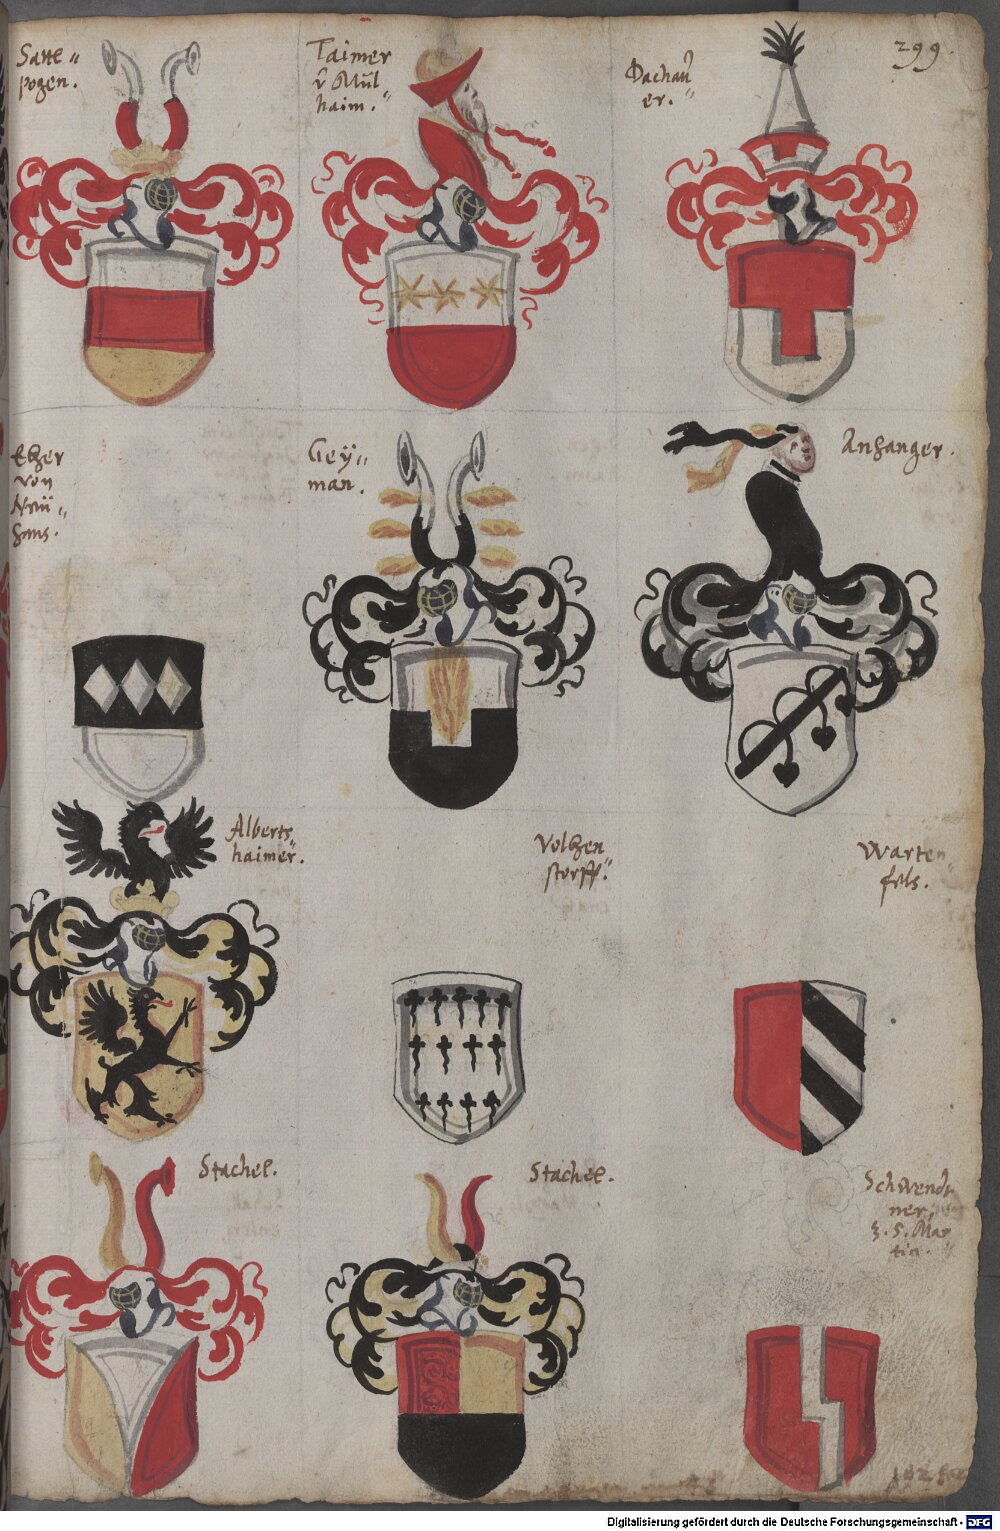 299.
Satte=
pogen.
Taimer
v Mül
haim.
Dachau
er.
von
Neü=
haus.
Gey=
man.
Anhanger.
Alberts
haimer.
Volkhen
storff.
Warten
fels.
Stachel.
Stachel.
Schwendt
ner,
z. S. Mar
tin.
Digitalisierung gefördert durch die Deutsche Forschungsgemeinschaft - DFG